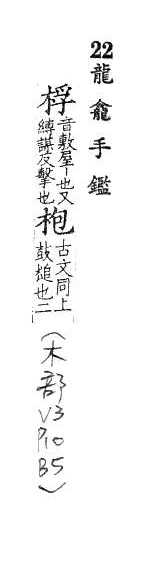 22龍龕手鑑
桴音敷屋丨也又縛謀反擊也枹古文同上鼓槌也二
(木部V3P10B5)